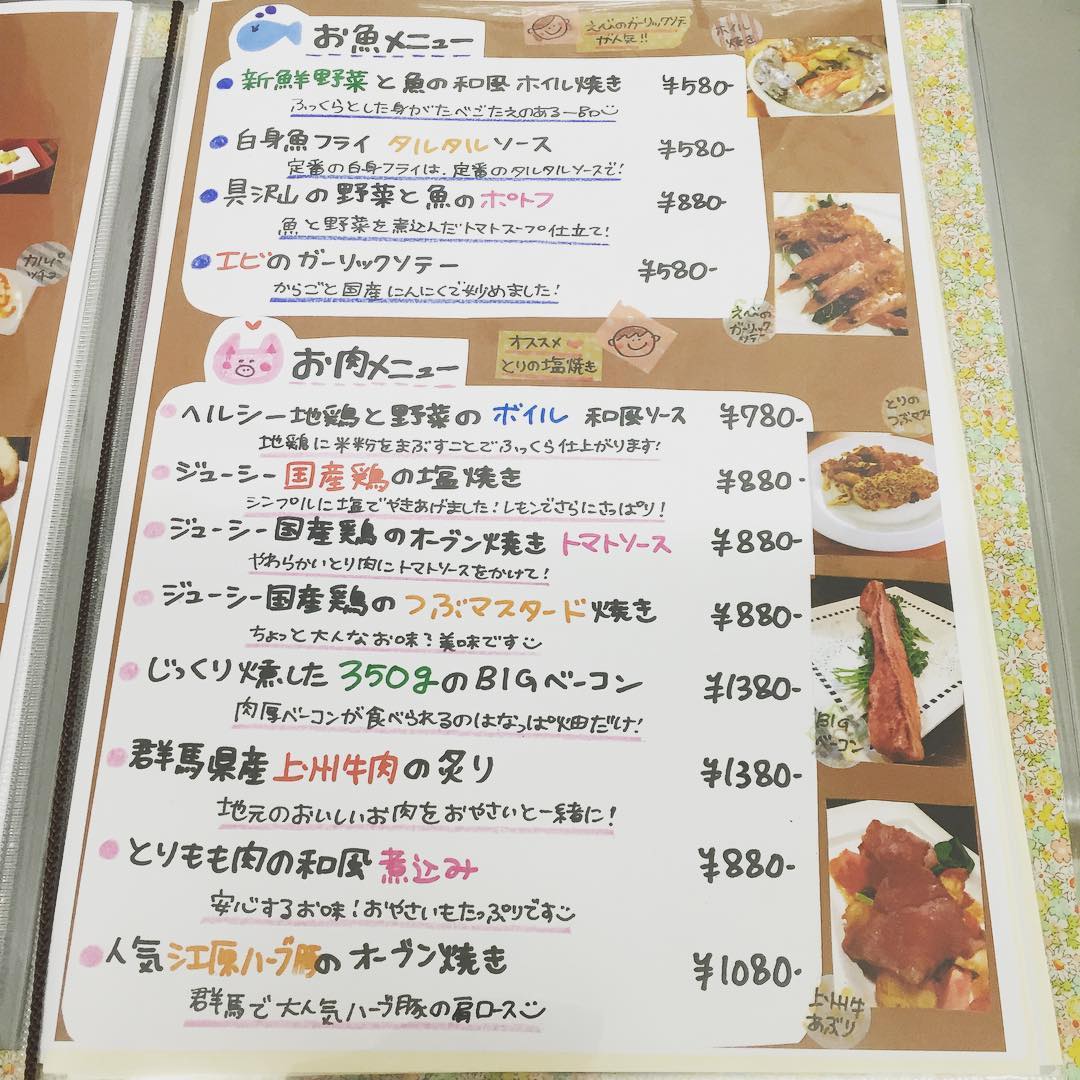 お魚メニュー
えびのガーリックソテーが人気!!
ホイル焼き
新鮮野菜と魚の和風ホイル焼き ¥580-
ふっくらとした身がたべごたえのある一品
白身魚フライ タルタルソース ¥580-
定番の白身フライは、定番のタルタルソースで!
具沢山の野菜と魚のポトフ ¥880-
魚と野菜を煮込んだトマトスープ仕立て!
エビのガーリックソテー ¥580-
からごと国産にんにくで炒めました!
えびの
ガーリック
ソテー
お肉メニュー
オススメ
とりの塩焼き
ヘルシー地鶏と野菜のボイル 和風ソース ¥780-
地鶏に米粉をまぶすことでふっくら仕上がります!
とりの
つぶマスタ
ジューシー国産鶏の塩焼き ¥880-
シンプルに塩でやきあげました!レモンでさらにさっぱり!
ジューシー国産鶏のオーブン焼き トマトソース ¥880-
やわらかいとり肉にトマトソースをかけて!
ジューシー国産鶏のつぶマスタード焼き ¥880-
ちょっと大人なお味?美味です
じっくり燻した350gのBIGベーコン ¥1380-
肉厚ベーコンが食べられるのはなっぱ畑だけ!
BIG
ベーコン
群馬県産上州牛肉の炙り ¥1380-
地元のおいしいお肉をおやさいと一緒に!
とりもも肉の和風煮込み ¥880-
安心するお味!おやさいもたっぷりです
人気江原ハーブ豚のオーブン焼き ¥1080-
群馬で大人気ハーブ豚の肩ロース
上州牛
あぶり
カルパ
ッチョ